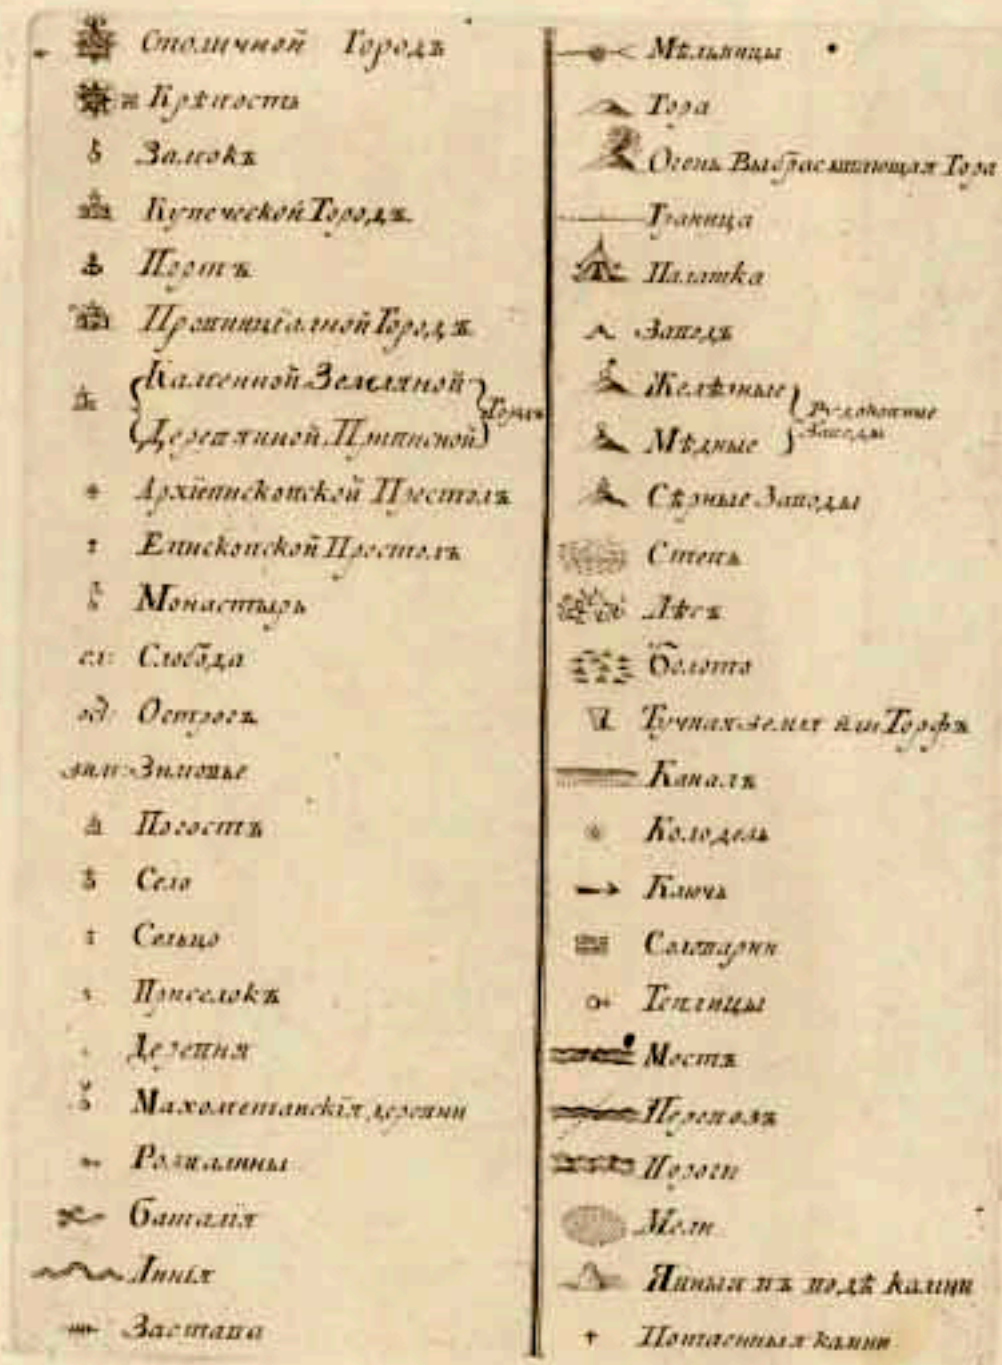 Столичной Городъ
Крѣпость
Замокъ
Купеческой Городъ
Портъ
Провинцїалной Городъ
Каменной Земляной
Деревяной Приписной
Городъ
Архїепископской Престолъ
Епископской Престолъ
Монастырь
сл: Слобода
ост: Острогъ
зим: Зимовье
Погостъ
Село
Сельцо
Приселокъ
Деревня
Махометанскїя деревни
Развалины
Баталїя
Линїя
Застава
Мѣльницы
Гора
Огень Выбрасывающая Гора
Граница
Палатка
Заводъ
Желѣзные
Мѣдные
Рудокопные
Заводы
Сѣрные Заводы
Степь
Лѣсъ
Болото
Тучная земля или Торфъ
Каналъ
Колодезь
Ключь
Солеварни
Теплицы
Мостъ
Перевозъ
Пороги
Мели
Явныя въ водѣ камни
Потаенныя камни